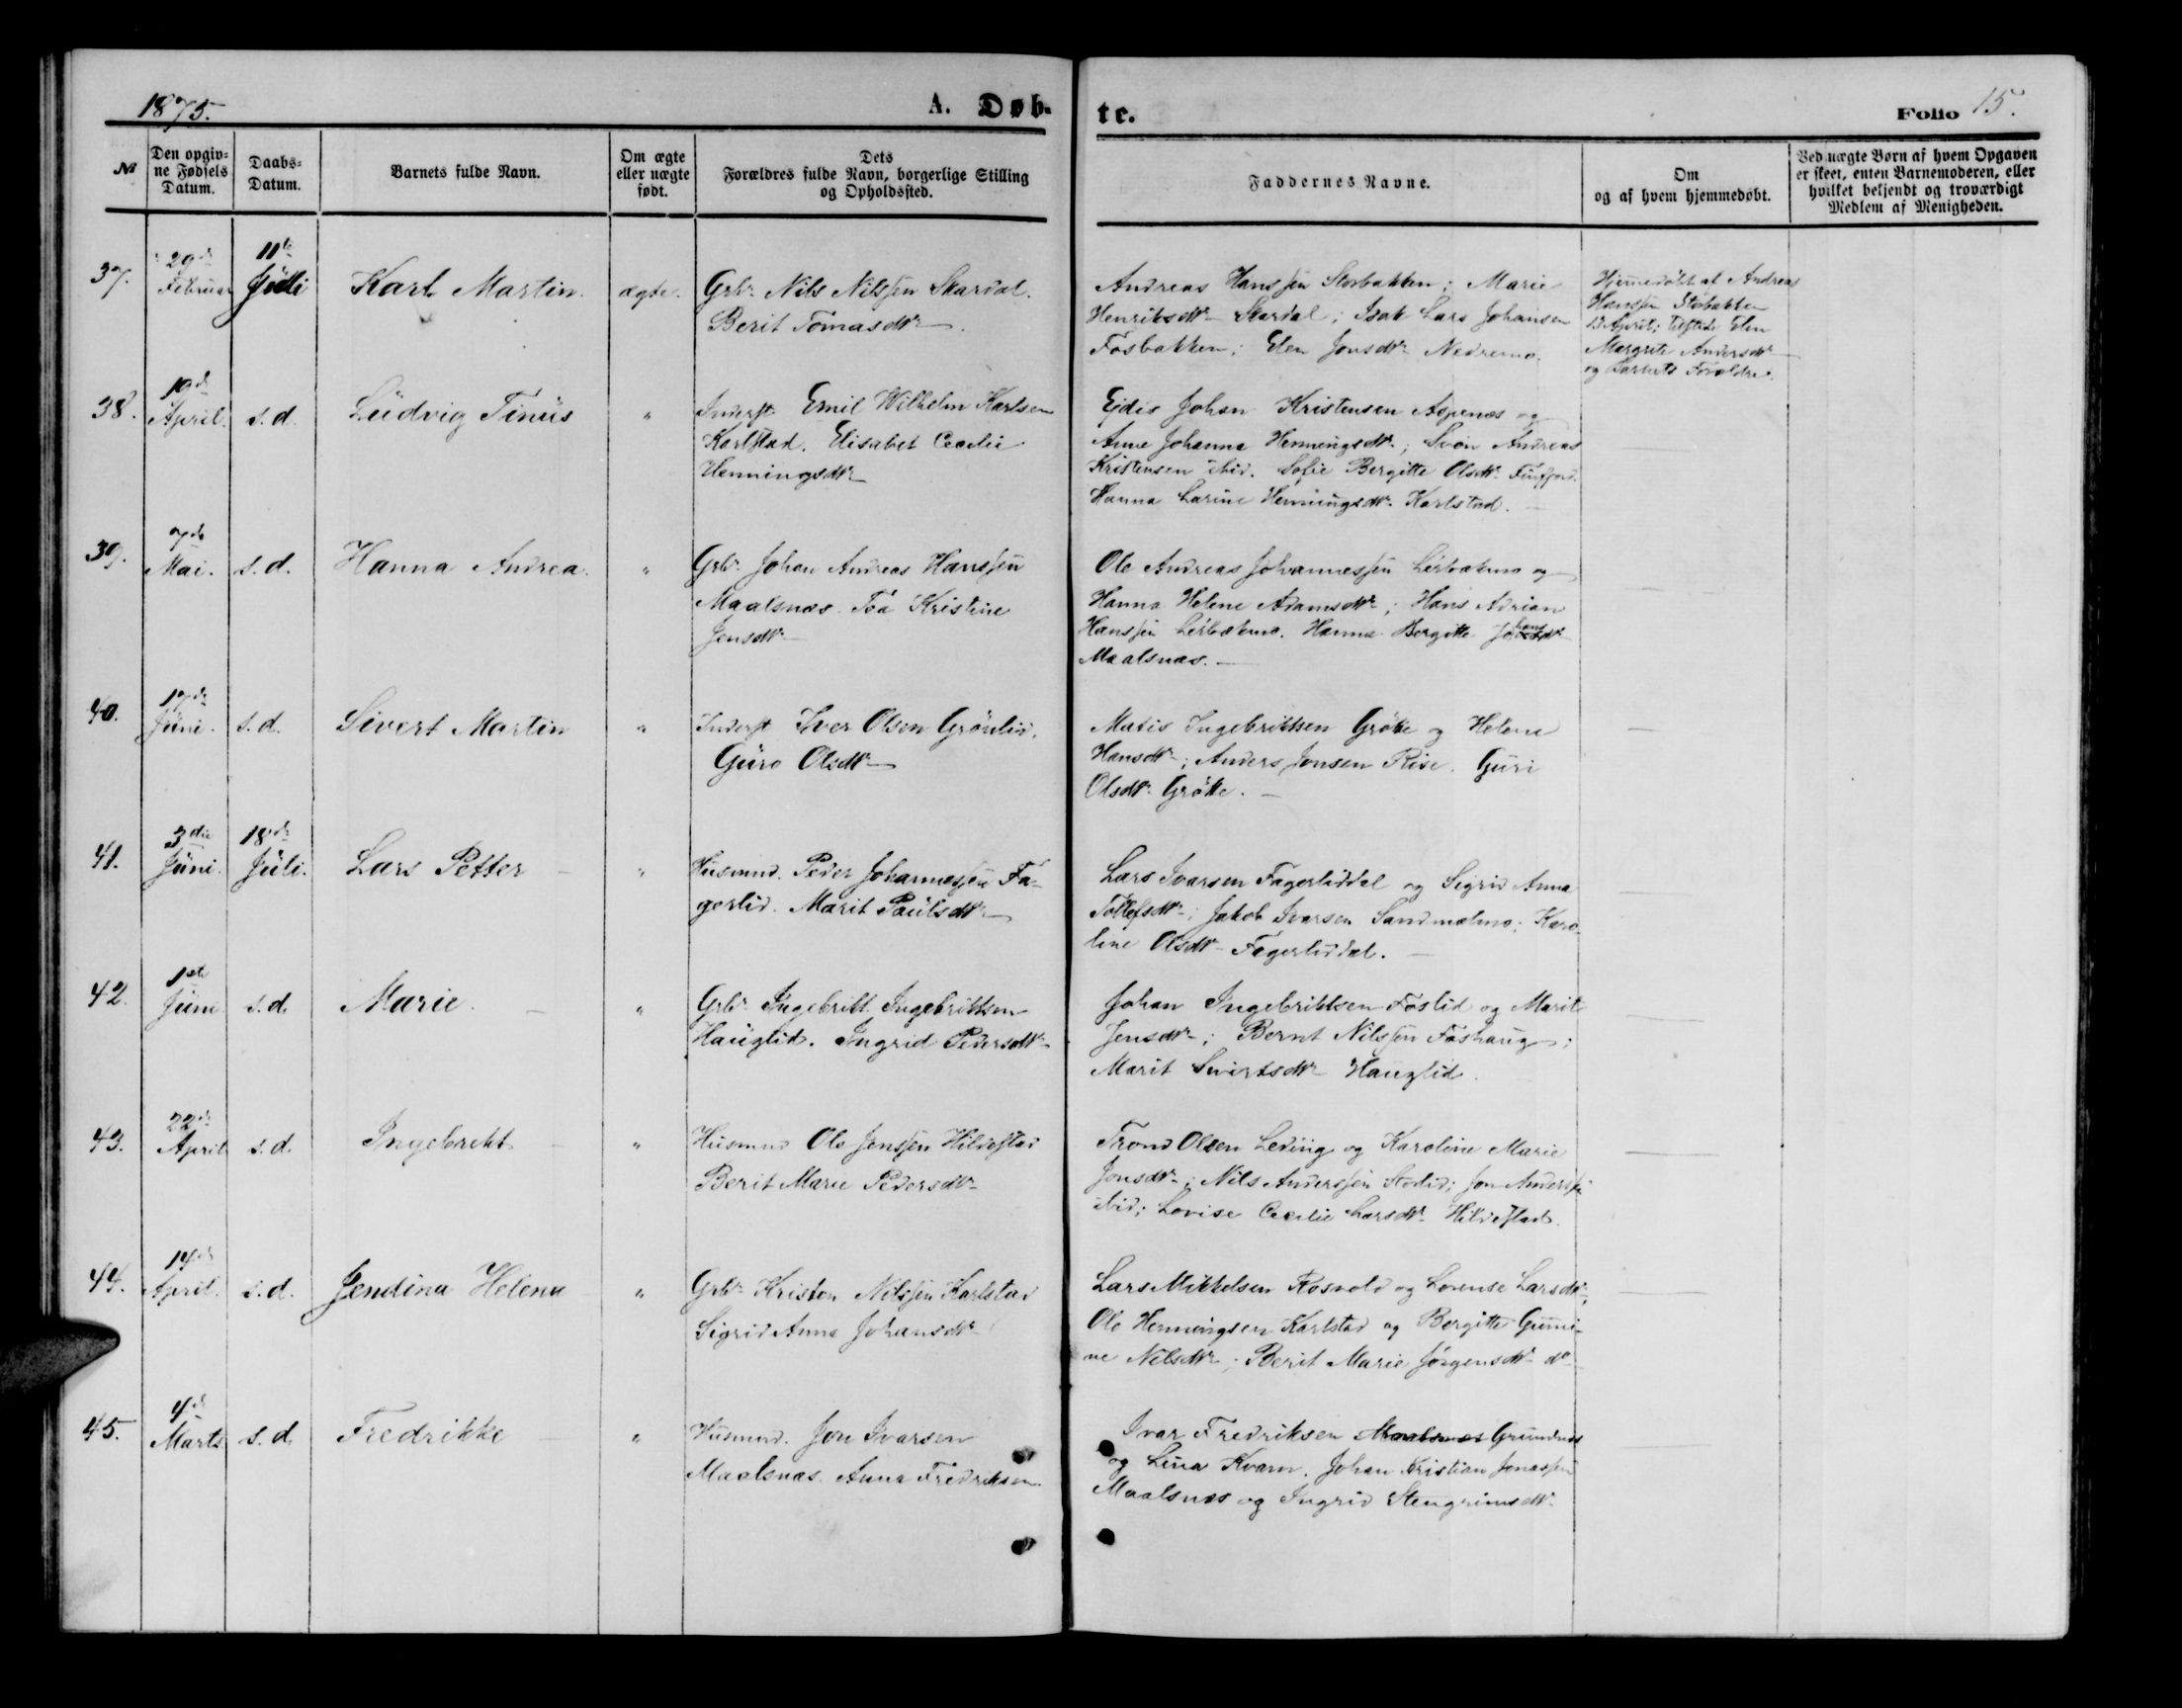 1875.
A. Døb-
te.
Folio 15.
№
Den opgiv-
ne Fødsels
Datum.
Daabs-
Datum.
Barnets fulde Navn.
Om ægte
eller uægte
født.
Dets
Forældres fulde Navn, borgerlige Stilling
og Opholdssted.
Faddernes Navne.
Om
og af hvem hjemmedøbt.
Ved uægte Børn af hvem Opgaven
er skeet, enten Barnemoderen, eller
hvilket bekjendt og troværdigt
Medlem af Menigheden.
37.
29de
Februar
11te
Juli
Karl Martin.
ægte.
Grbr. Nils Nilssen Skardal.
Berit Tomasdtr
Andreas Hanssen Storbakken; Marie
Henriksdtr Skardal; Isak Lars Johansen
Fosbakken; Elen Jonsdtr Nedremo.
Hjemmedøbt af Andreas
Hanssen Storbakken
April; Elen
Margrete Andersdtr
og Barnets Forældre.
38.
19de
April.
s. d.
Ludvig Tinus
"
Inderst Emil Wilhelm Karlsen
Karlstad. Elisabet Cecilie
Henningsdtr
Ejdis Johan Kristensen Aspenes og
Anne Johanna Henningsdtr; Svön Andreas
Kristensen ibid. Sofie Bergitte Olsdtr Finfjord.
Hanna Larine Henningsdtr. Karlstad.
39.
7de
Mai.
s. d.
Hanna Andrea.
"
Grbr. Johan Andreas Hanssen
Maalsnæs. Tea Kristine
Jensdtr
Ole Andreas Johannessen Leirbakmo og
Hanna Helene Adamsdtr; Hans Adrian
Hanssen Leirbakmo. Hanna Bergitte Johansdtr
Maalsnæs.
40.
17de
Juni.
s. d.
Sivert Martin
"
Inderst Iver Olsen Grönlid.
Guro Olsdtr
Matis Ingebrittsen Grötte og Helene
Hansdtr; Anders Jonsen Rise. Guri
Olsdtr Grötte.
41.
3die
Juni.
18de
Juli.
Lars Petter
"
Husmnd. Peder Johannessen Fa-
gerlid. Marit Paulsdtr
Lars Ivarsen Fagerliddal og Sigrid Anna
Tollefsdtr; Jakob Ivarsen Sandmælmo; Karo-
line Olsdtr Fagerliddal.
42.
1ste
Juni
s. d.
Marie.
"
Grbr. Ingebritt Ingebrittsen
Hauglid. Ingrid Pedersdtr
Johan Ingebrittsen Foslid og Marit
Jensdtr; Bernt Nilssen Foshaug;
Marit Sivertsdtr Hauglid.
43.
22de
April
s. d.
Ingebrekt
"
Husmnd Ole Jenssen Hildestad
Berit Marie Pedersdtr
Trond Olsen Leding og Karoline Marie
Jonsdtr; Nils Anderssen Stolid; Jon Anderssen
ibid; Lovise Cecilie Larsdtr. Hildestad.
44.
14de
April.
s. d.
Jendina Helena
"
Grbr Kristen Nilssen Karlstad
Sigrid Anna Johansdtr
Lars Mikkelsen Rosvold og Lorense Larsdtr;
Ole Henningsen Karlstad og Bergitte Gumi-
ne Nilsdtr; Berit Marie Jørgensdtr do
45.
4de
Marts
s. d.
Fredrikke
"
Husmnd. Jon Ivarsen
Maalsnæs. Anna Fredriksen.
Ivar Fredriksen Maalsnæs Grundnæs
og Lina Kvam. Johan Kristian Jonassen
Maalsnæs og Ingrid Stengrimsdtr.